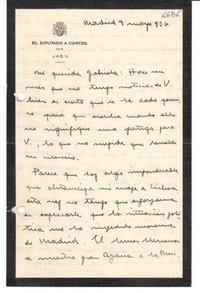 6686
Madrid 9 mayo 936.
EL DIPUTADO A CORTES
POR
JAEN
Mi querida Gabriela: Hace un
mes que no tengo noticias de V
bien es cierto que le he dado permi
so para que escriba cuando ello
no signifique una fatiga para
V., lo que no impide que lamente
mi silencio.
Parece que hay algo imponderable
que obstaculiza mi viaje a Lisboa,
esta vez no tengo que esforzarme
en explicarle que la situación polí
tica me ha impedido moverme
de Madrid. El lunes llevamos
a nuestro gran Azaña a la Presi